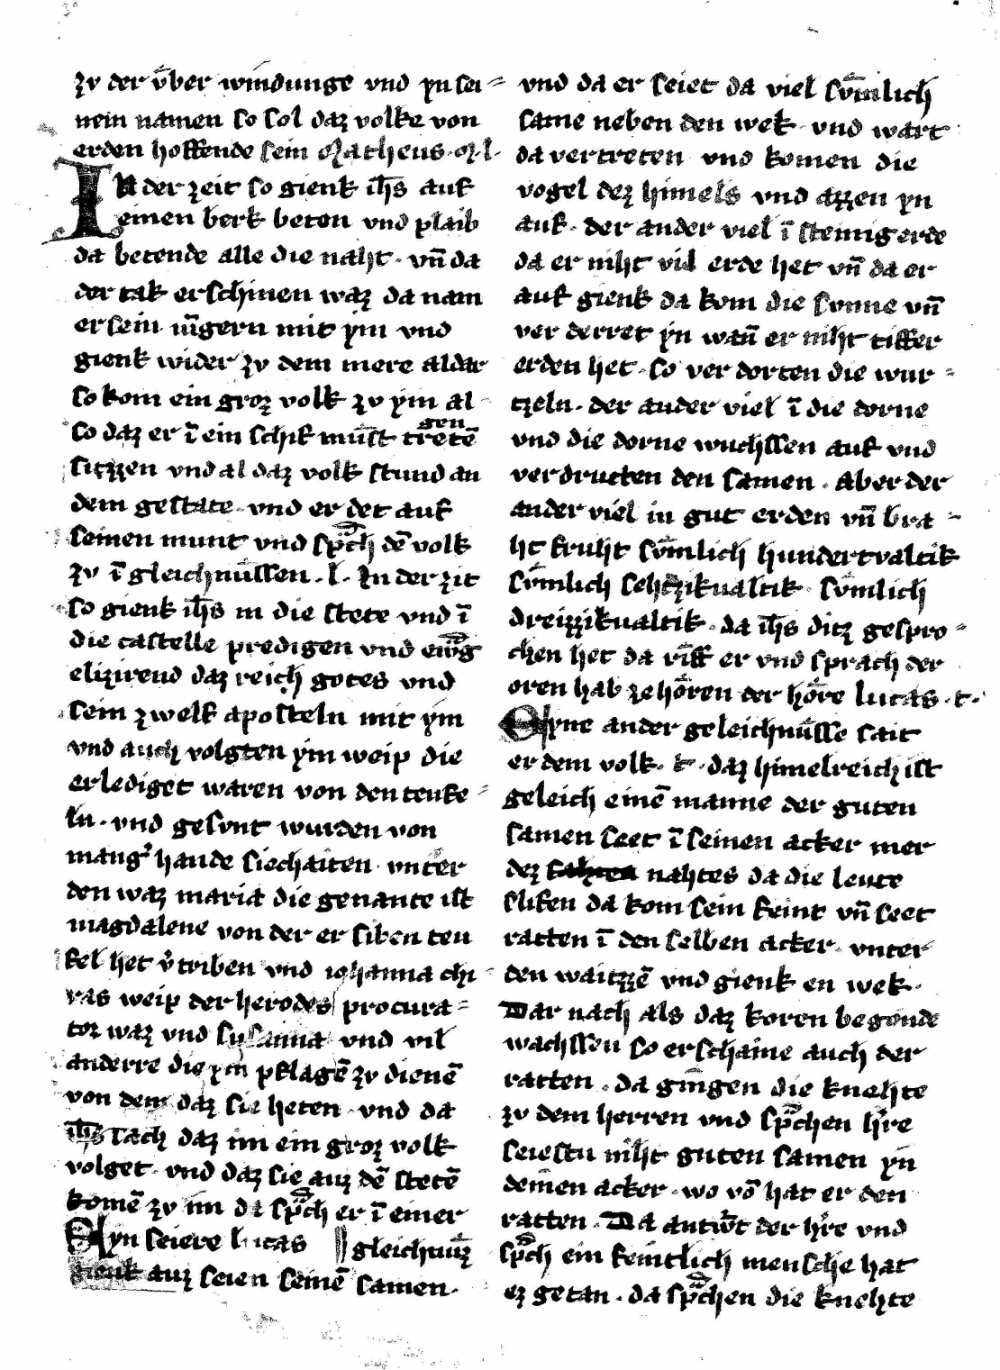 zv der v̂ber windunge vnd yn sei=
nein namen so sol daz volke von
erden hoffende sein Matheus · M · l ·
IN der zeit so gienk ih̄s auf
einen berk beten vnd plaib
da betende alle die naht · vn̄ da
der tak erschinen waz da nam
er sein iūgern mit ym vnd
gienk wider zv dem mere aldar
so kom ein groz volk zv ym al=
so daz er ī ein schif mu̇st tretē gen
sitzzen vnd al daz volk stund an
dem gestate · vnd er det auf
seinen munt vnd sp̄ch dē volk
zv ī gleichnu̇ssen · l · In der zit
so gienk ih̄s in die stete vnd ī
die castelle predigen vnd ew̄g
elizirend daz reich gotes vnd
sein zwelf aposteln mit ym
vnd auch volgten ym weip die
erlediget waren von den teufe=
ln · vnd gesvnt wurden von
mang' hande siechaiten · vnter
den waz maria die genante ist
magdalene von der er siben teu
fel het v'triben vnd iohanna chu=
ras weip der herodes procura=
tor waz vnd susanna vnd vil
anderre die ym pflagē zv dienē
von dem daz sie heten · vnd da
ih̄s sach daz im ein groz volk
volget · vnd daz sie auz dē stetē
komē zv im da sp̄ch er ī einer
Eyn seiere lucas || gleichnu̇z
gienk auz seien seinē samen ·
vnd da er seiet da viel sv̂mlich
same neben den wek · vnd wart
da vertreten vnd komen die
vogel dez himels vnd azzen yn
auf · der ander viel ī steinig erde
da er niht vil erde het vn̄ da er
auf gienk da kom die sunne vn̄
ver derret yn wan̄ er niht tiffer
erden het · so ver dorten die wur=
tzeln · der ander viel ī die dorne
vnd die dorne wuchssen auf vnd
verdructen den samen · Aber der
ander viel in gut erden vn̄ bra=
ht fruht sv̂mlich hundertvaltik
sv̂mlich sehtzikualtik · sv̂mlich
dreizzikualtik · da ih̄s ditz gespro=
chen het da riff er vnd sprach der
oren hab ze ho̊ren der ho̊re lucas · t ·
Eyne ander geleichnu̇sse sait
er dem volk · t · daz himelreich ist
geleich einē manne der guten
samen seet ī seinen acker mer
dez nahtes da die leute
slifen da kom sein feint vn̄ seet
ratten ī den selben acker · vnter
den waitzzē vnd gienk en wek ·
Dar nach als daz koren begonde
wachssen so erschaine auch der
ratten · da gingen die knehte
zv dem herren vnd sp̄chen h're
seiestu niht guten samen yn
deinen acker · wo vō hat er den
ratten · Da antw̄t der h're vnd
sp̄ch ein feintlich mensche hat
ez getan · da sp̄chen die knehte